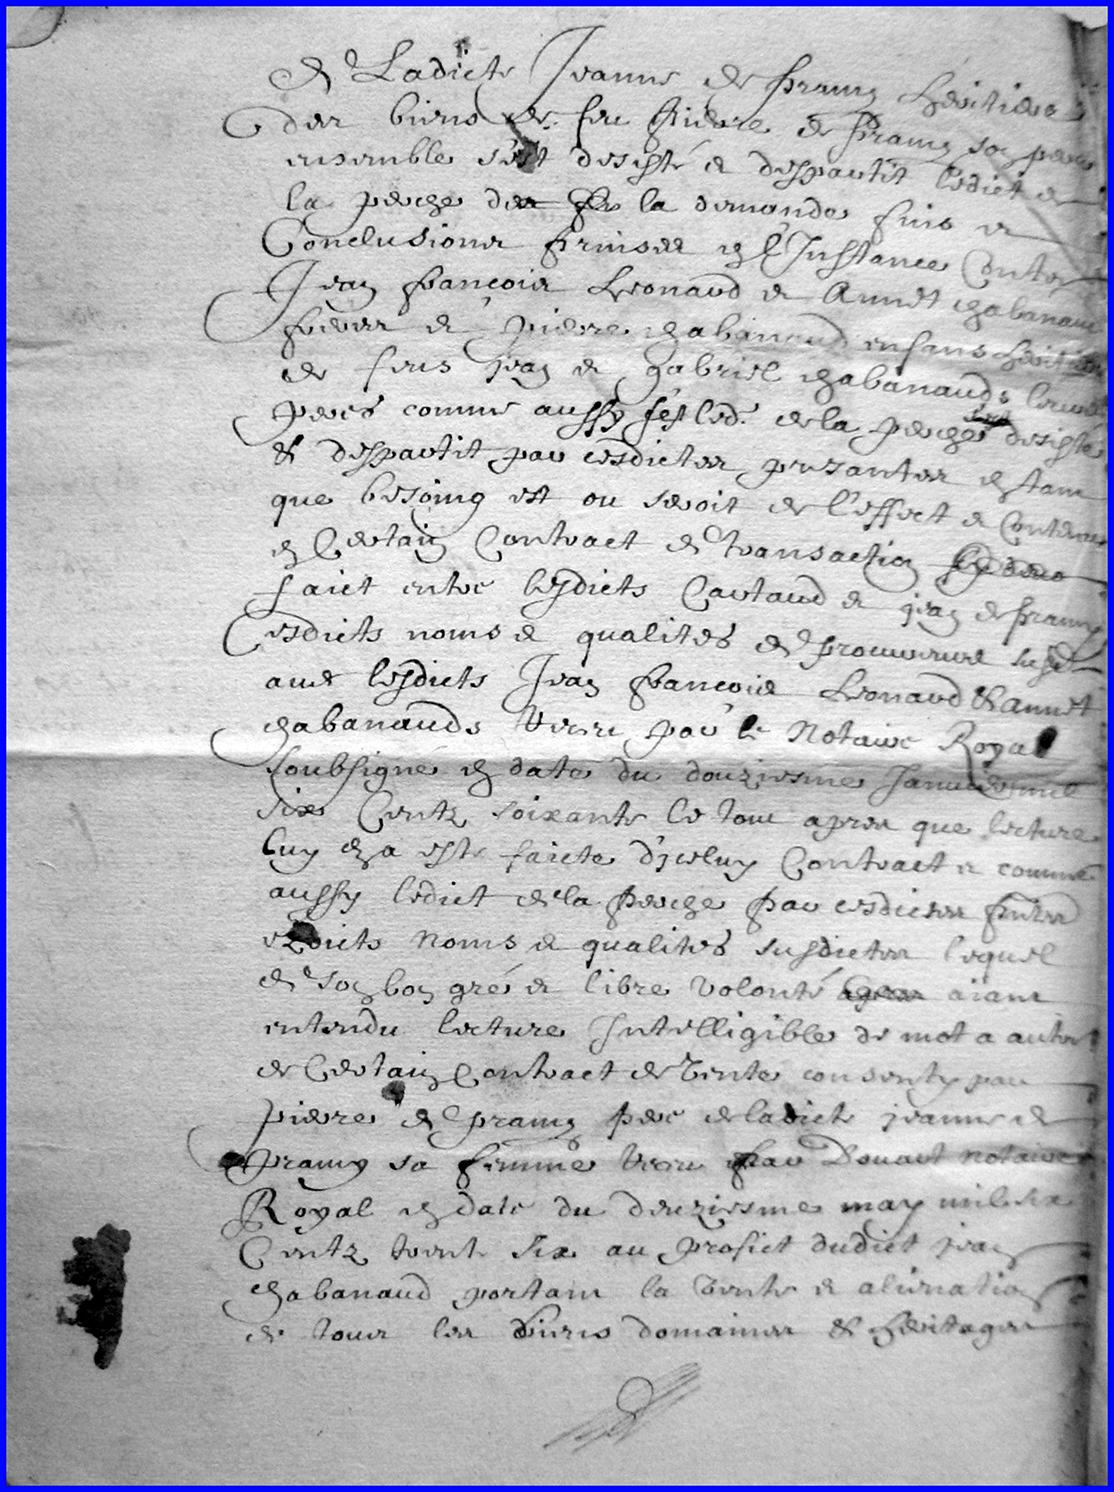 de Ladicte Jeanne de pramy heritiere
des biens de feu pierre de pramy son pere
ensemble s'est desisté et despartit ledict de
la perche de la demande fins et
Conclusions prinses en l'Instance Contre
Jean françois Leonard et Annet chabanaud
freres et pierre chabanaud enfans heritiers
de feus jean et gabriel chabanauds leurs
peres comme aussy s'est led. de la perche desisté
& despartit par cesdictes presantes estant
que besoing est ou seroit de l'effect et Contenu
en Certain Contract de transaction
faict entre lesdicts Cartaud et jean de pramy
esdicts noms et qualites de procureure susd
avec lesdicts Jean françois Leonard & annet
chabanauds receu par le Notaire Royal
soubsigné en date du douziesme Janvier mil
six Centz soixante le tout apres que lecture
luy en a esté faicte d'iceluy Contract et comme
aussy ledict de la perche par cesdictes
esdicts Noms et qualites susdictes lequel
de son bon gré et libre volonté aiant
entendu lecture Intelligible de mot a autre
de Certain Contract de vente consenty par
pierre de pramy pere de ladicte jeanne de
pramy sa femme receu par Douart notaire
Royal en date du douziesme may mil six
Centz trente six au profict dudict jean
chabanaud portant la vente et alienation
de tous les biens domaines & heritages